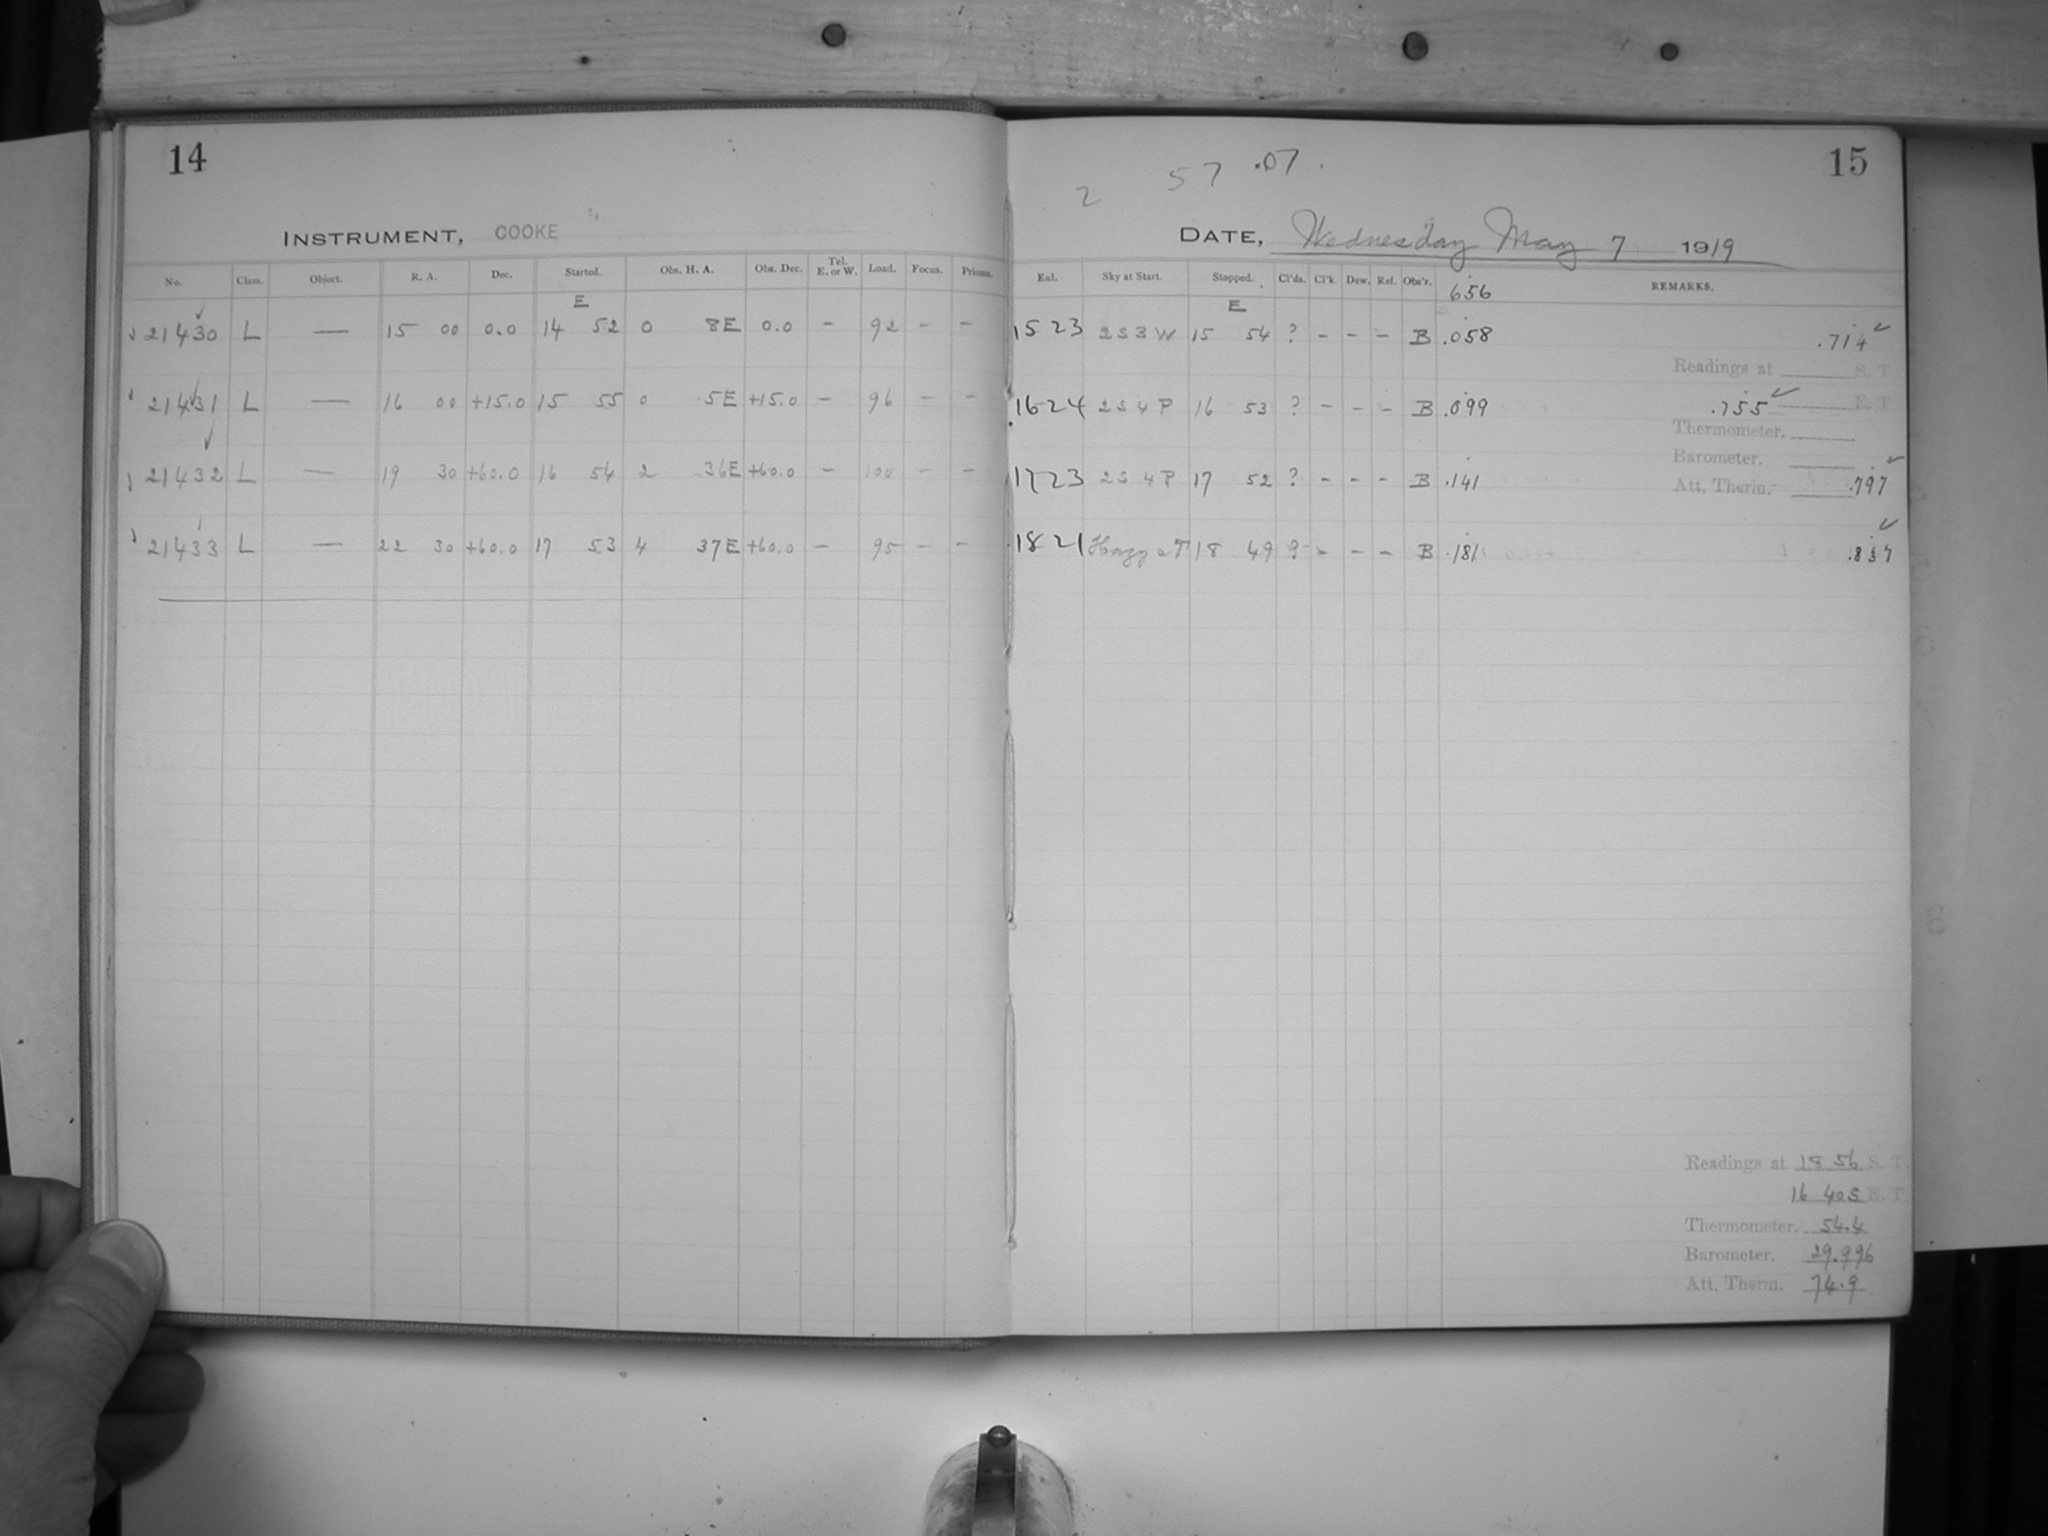 14
INSTRUMENT, COOKE
No. Class. Object. R. A. Dec. Started. Obs. H. A. Obs. Dec. Tel. E. or W. Load. Focus. Prisms.
E
21430 L — 15 00 0.0 14 52 0 8E 0.0 - 92 - -
21431 L — 16 00 +15.0 15 55 0 5E +15.0 - 96 - -
21432 L — 19 30 +60.0 16 54 2 36E +60.0 - 100 - -
21433 L — 22 30 +60.0 17 53 4 37E +60.0 - 95 - -
15
2 57 .07.
DATE, Wednesday May 7 1919
Sky at Start. Stopped. Cl'ds. Cl'k. Dew. Ref. Obs'r. 656 REMARKS.
E
15 23 2 S 3 W 15 54 ? - - - B .058 .714
Readings at S. T.
16 24 2 S 4 P 16 53 ? - - - B .099 .755 E. T.
Thermometer.
Barometer.
17 23 2 S 4 P 17 52 ? - - - B .141 Att. Therm. .797
18 21 18 49 ? - - - B .181 .837
Readings at 18 56 S. T.
16 40 S E. T.
Thermometer. 54.4
Barometer. 29.996
Att. Therm. 74.9